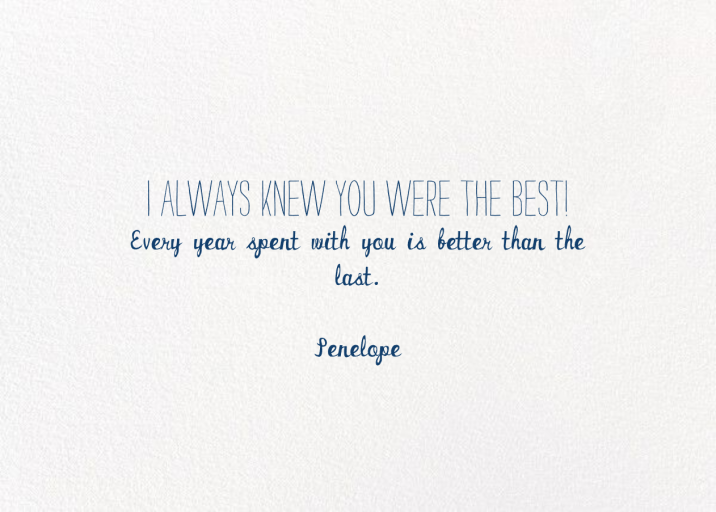 I ALWAYS KNEW YOU WERE THE BEST!
Every year spent with you is better than the
last.
Penelope